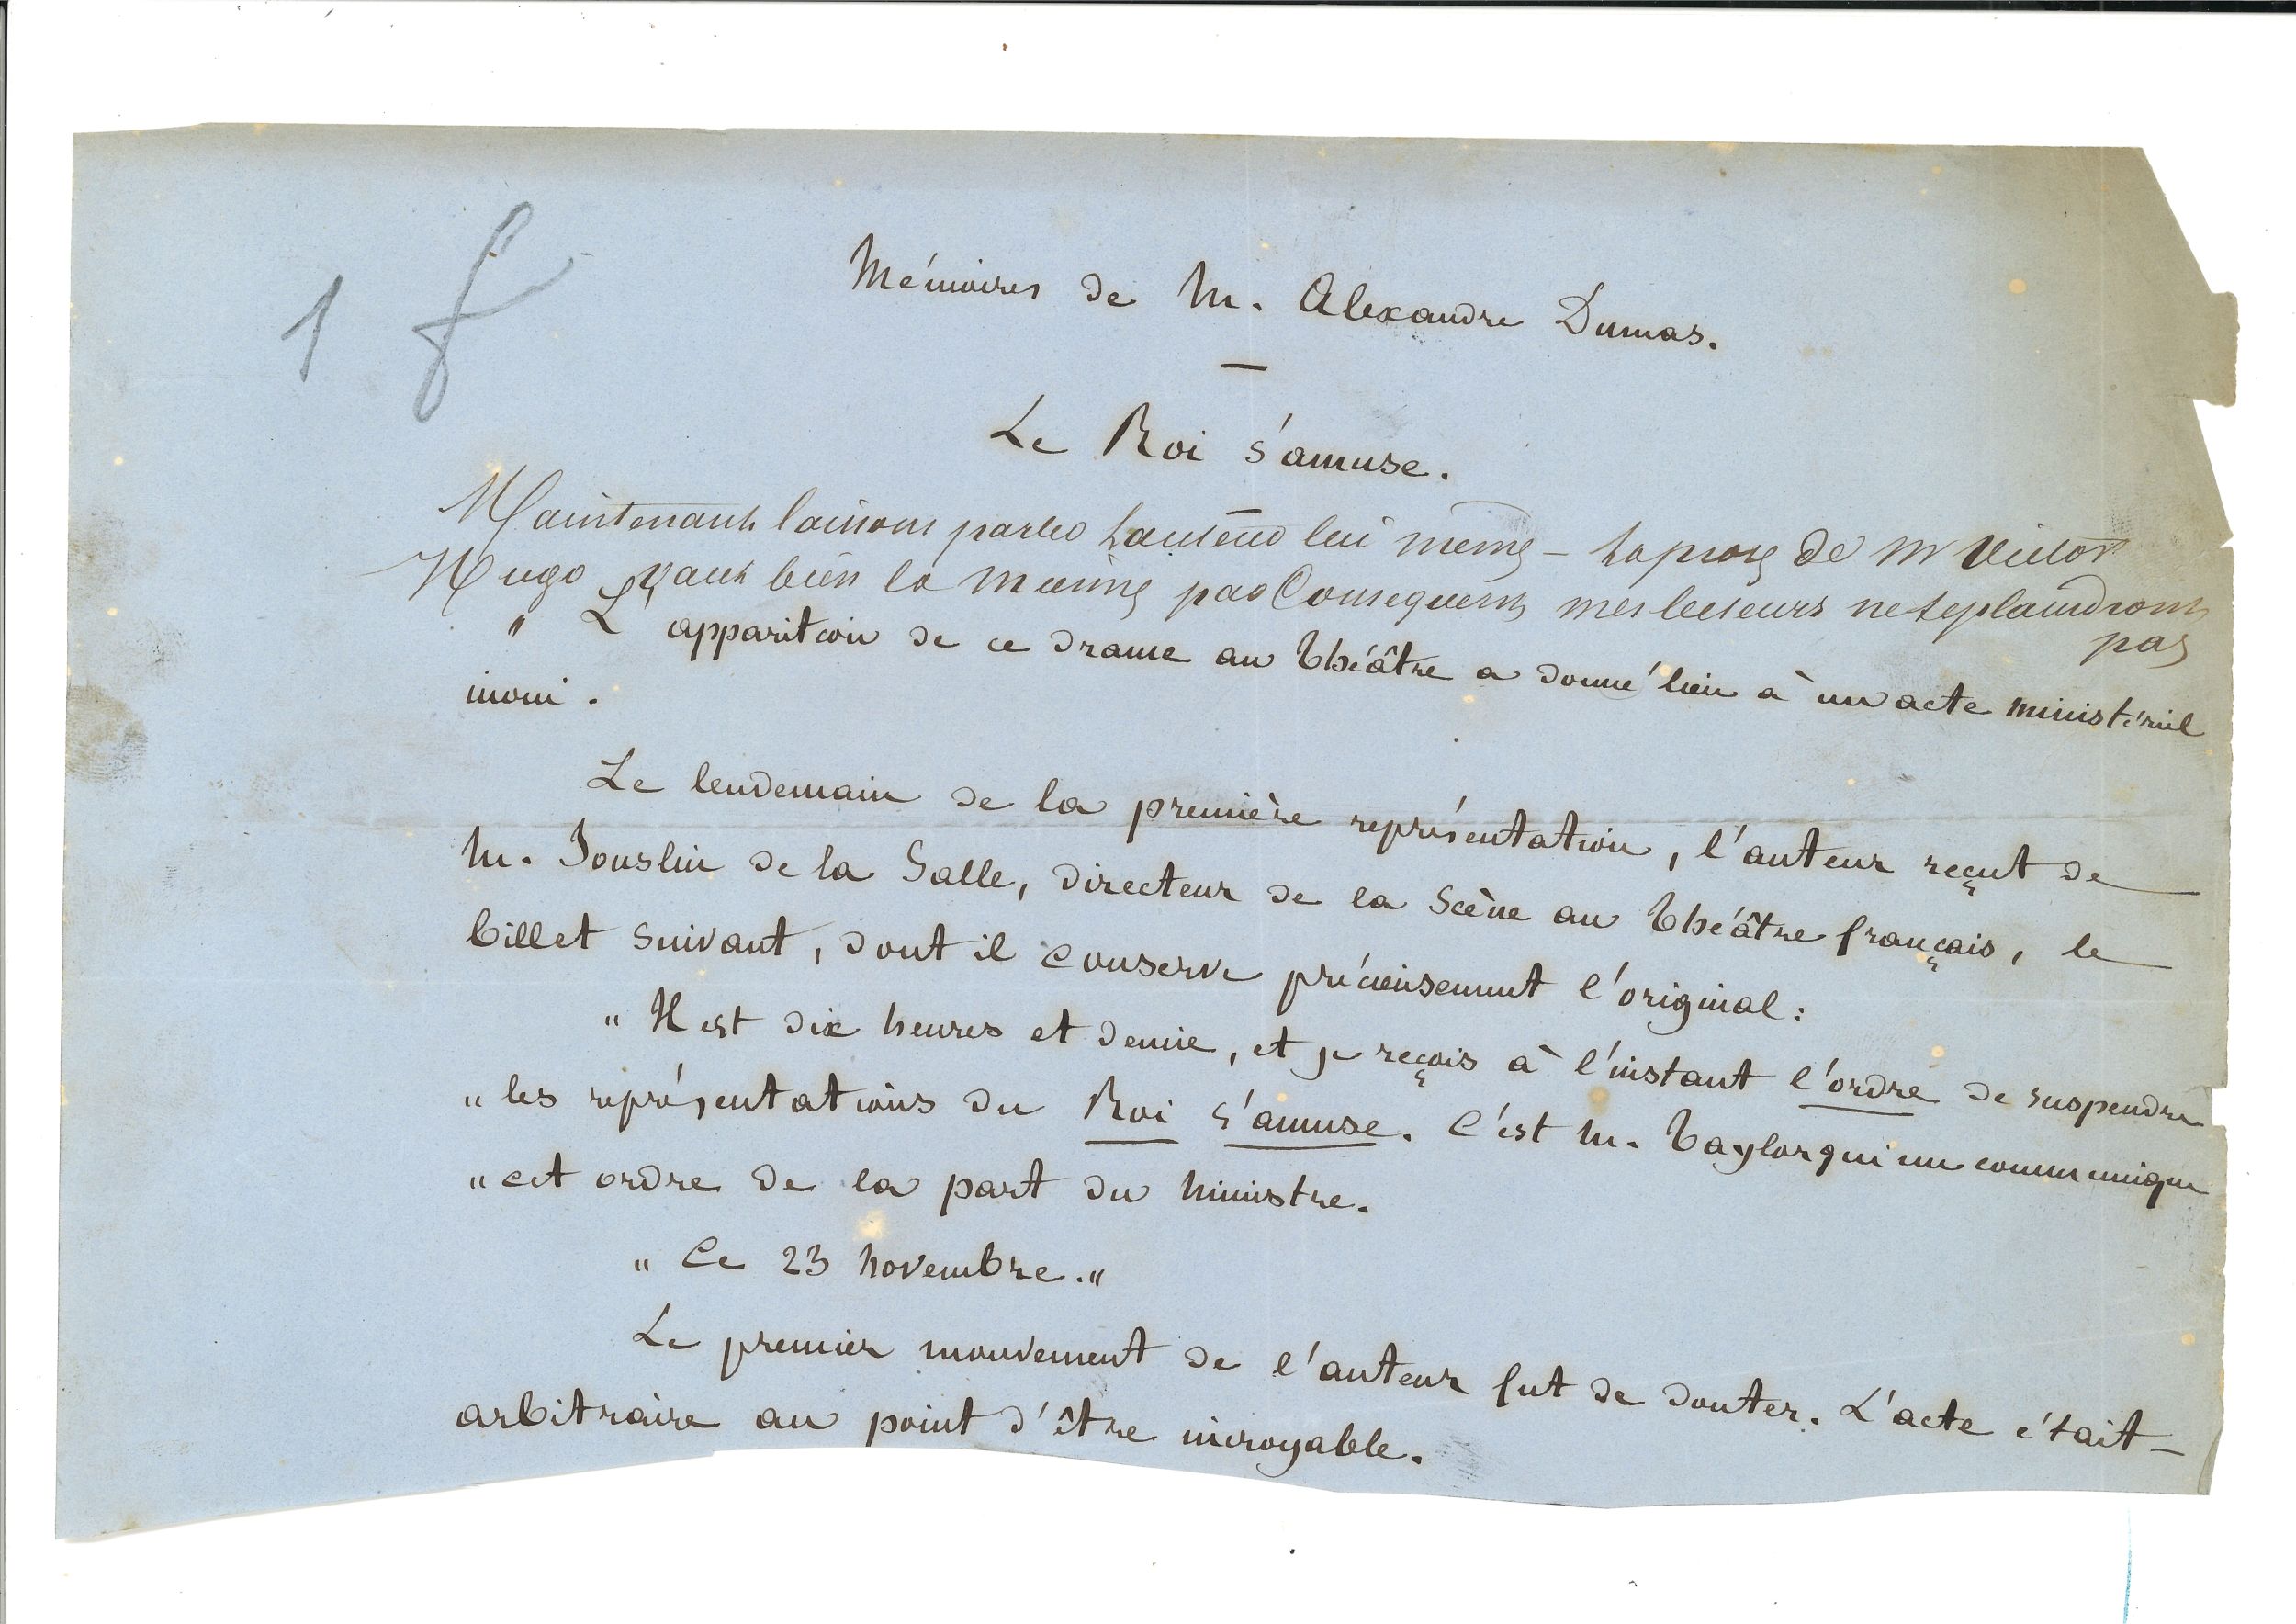 1 f
Mémoires de M. Alexandre Dumas.
—
Le Roi s'amuse.
Maintenant laissons parler l'auteur lui même — la prose de M Victor
Hugo vaut bien la mienne par Consequent mes lecteurs ne se plaindront
pas
" L'apparition de ce drame au Théâtre a donné lieu à un acte ministériel
inouï.
Le lendemain de la première représentation, l'auteur reçut de
M. Jouslin de la Salle, directeur de la Scène au Théâtre français, le
billet suivant, dont il conserve précieusement l'original:
" Il est dix heures et demie, et je reçois à l'instant l'ordre de suspendre
" les représentations du Roi s'amuse. C'est M. Taylor qui me communique
" cet ordre de la part du Ministre.
" Ce 23 Novembre. "
Le premier mouvement de l'auteur fut de douter. L'acte était
arbitraire au point d'être incroyable.